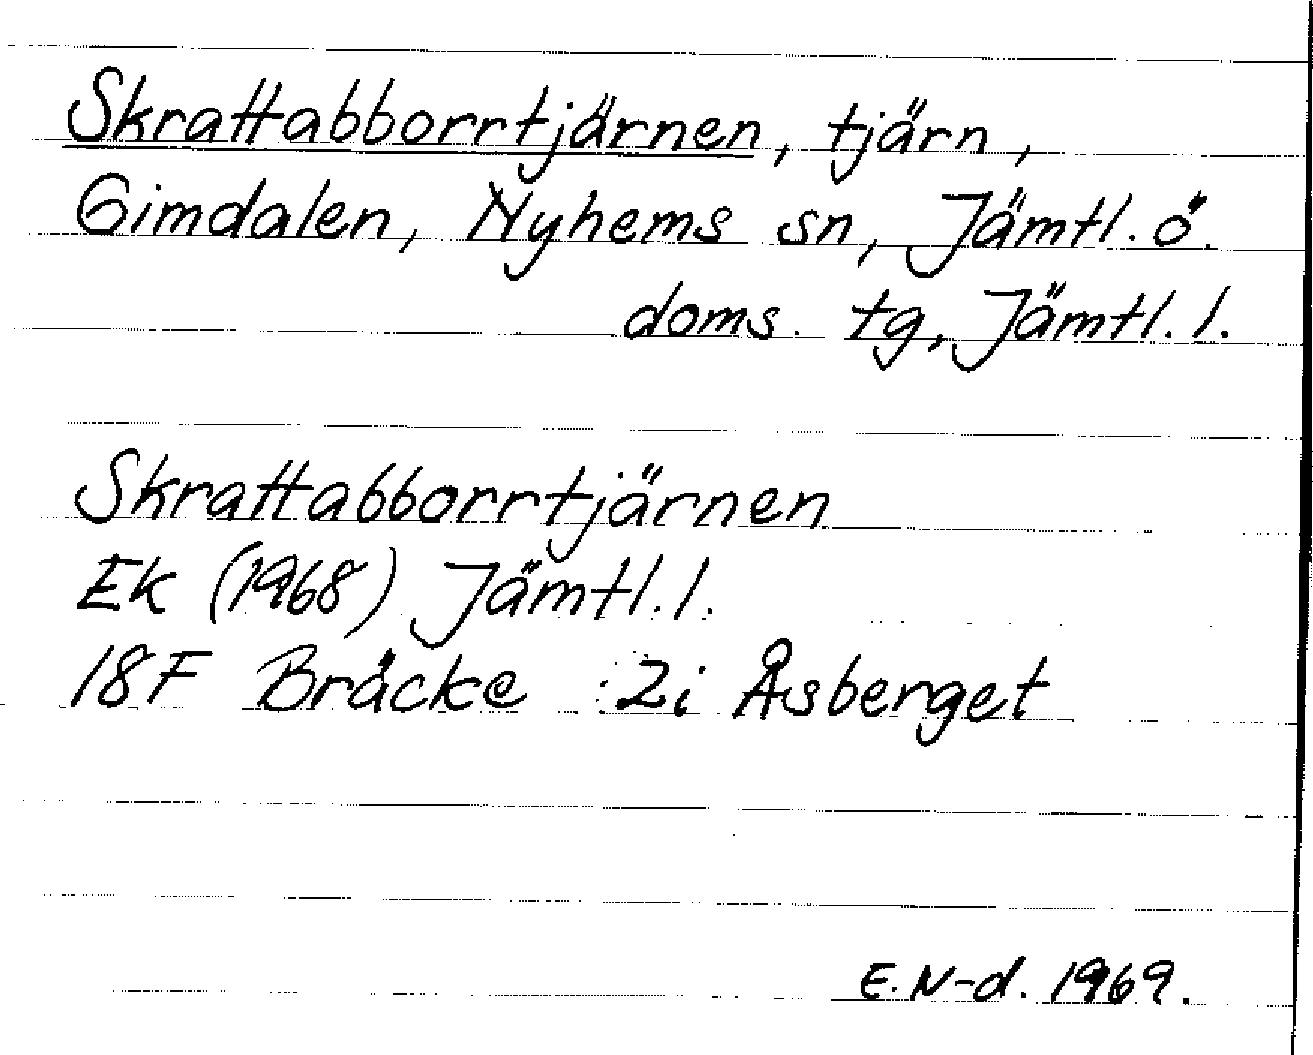 Skrattabborrtjärnen, tjärn,
Gimdalen, Nyhems sn, Jämtl. ö.
doms. tg, Jämtl. l.
Skrattabborrtjärnen
Ek (1968) Jämtl. l.
18F Bräcke 2i Åsberget
E. N-d. 1969.